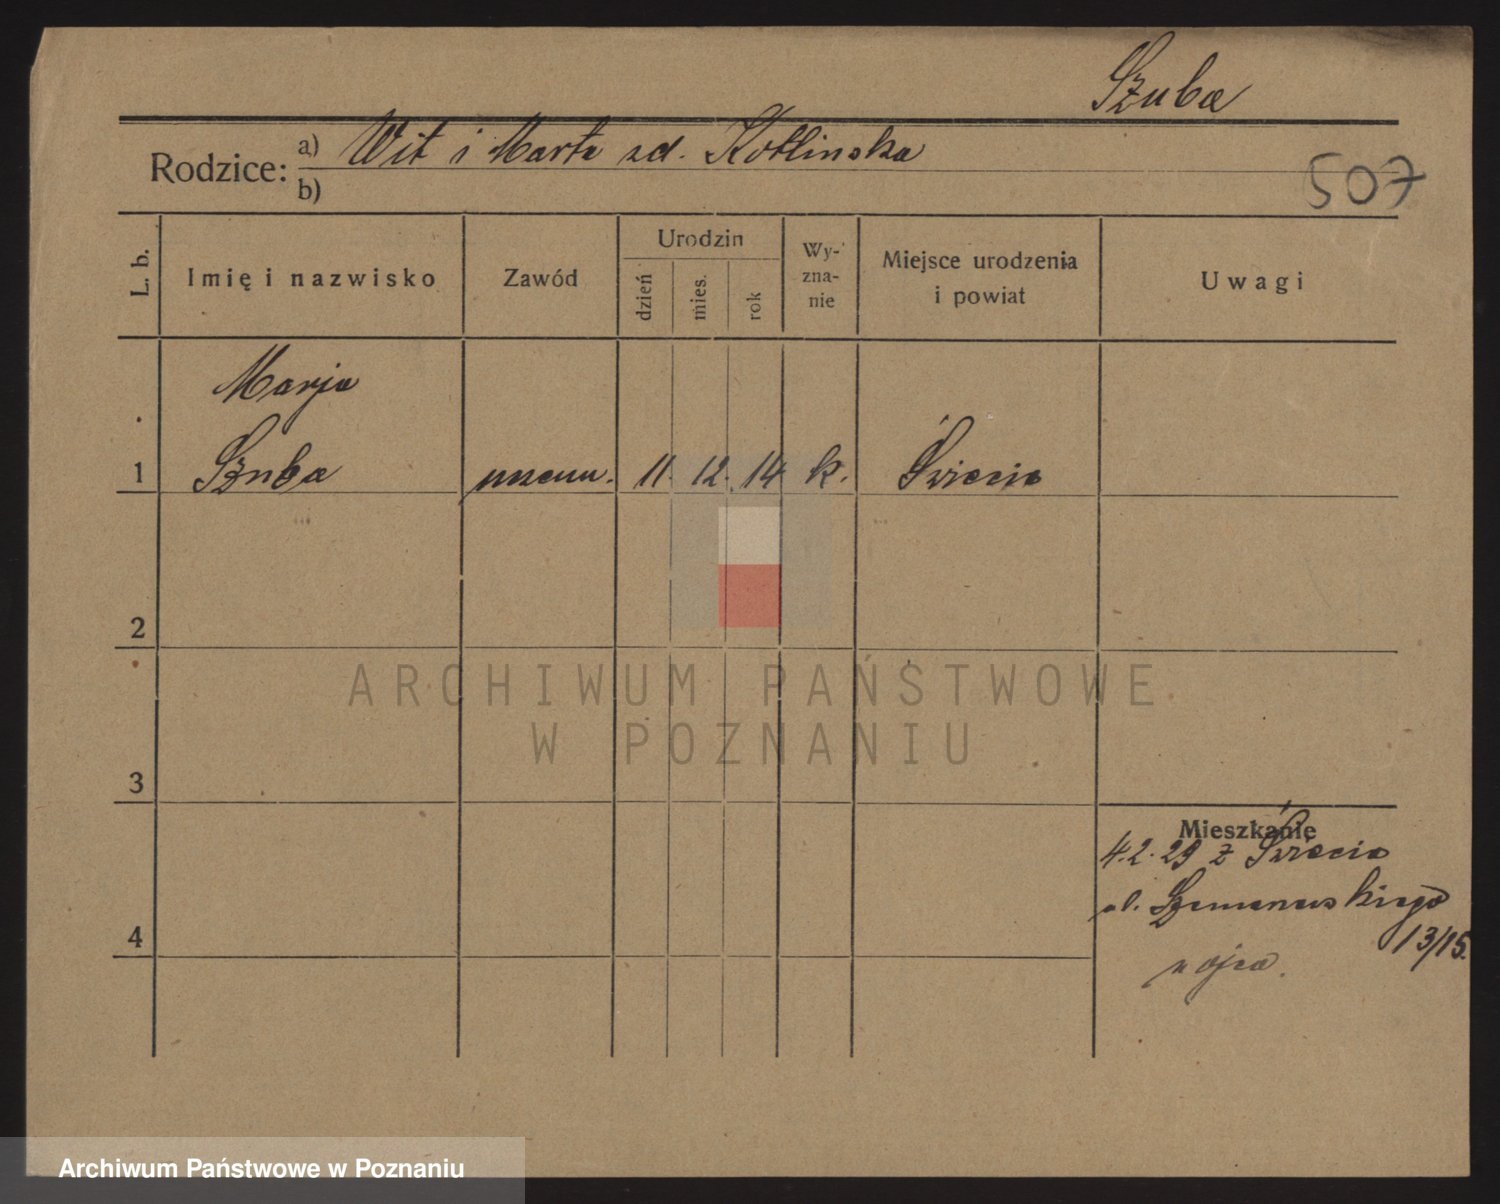 Szuba
Rodzice: a) Wit i Marta zd. Kotlinska
b)
507
L. b.
Imię i nazwisko
Zawód
Urodzin
dzień
mies.
rok
Wy-
zna-
nie
Miejsce urodzenia
i powiat
Uwagi
Marja
1 Szuba uczenn. 11. 12. 14 k. Świecie
2
ARCHIWUM PAŃSTWOWE
W POZNANIU
3
Mieszkanie
4.2.29 z Świecie
ul. Szamarzewskiego
13/15.
4
u ojca.
Archiwum Państwowe w Poznaniu